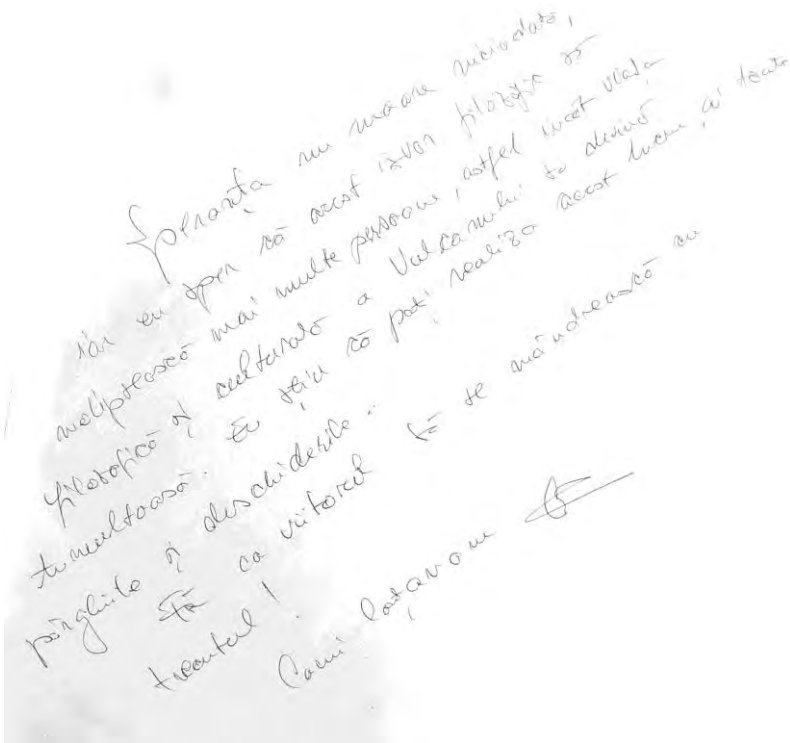 Speranța nu moare niciodată,
iar eu sper că acest izvor filozofic să
molipsească mai multe persoane, astfel încât viața
filozofică și culturală a Vulcanului să devină
tumultoasă. Eu știu că poți realiza acest lucru, ai toate
pârghiile și deschiderile.
Fă ca viitorul să se mândrească cu
trecutul!